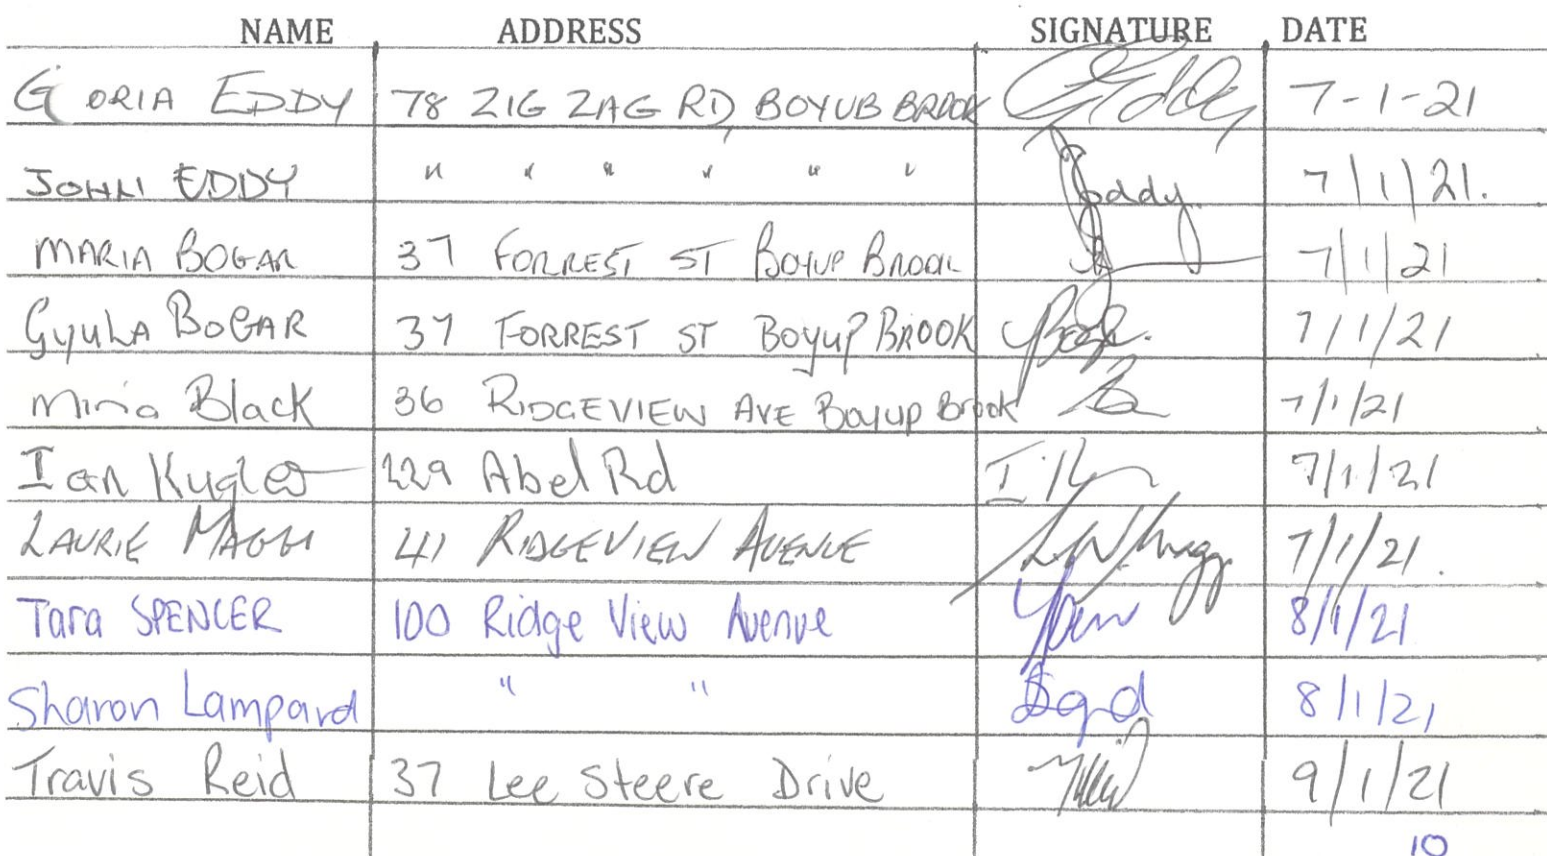 NAME ADDRESS SIGNATURE DATE
GORIA EDDY 78 ZIG ZAG RD, BOYUB BROOK GEddy 7-1-21
JOHN EDDY " " " " " " Jeddy. 7/1/21.
MARIA BOGAR 37 FORREST ST BOYUP BROOK 7/1/21
GyuLA BOGAR 37 FORREST ST BoyuP BROOK 7/1/21
Black 36 RIDGEVIEW AVE Boyup Brook 7/1/21
Ian Kugler 229 Abel Rd 7/1/21
LAURIE MAGGI 41 RIDGEVIEW AVENUE 7/1/21.
Tara SPENCER 100 Ridge View Avenue 8/1/21
Sharon Lampard " " 8/1/21
Travis Reid 37 Lee Steere Drive 9/1/21
10